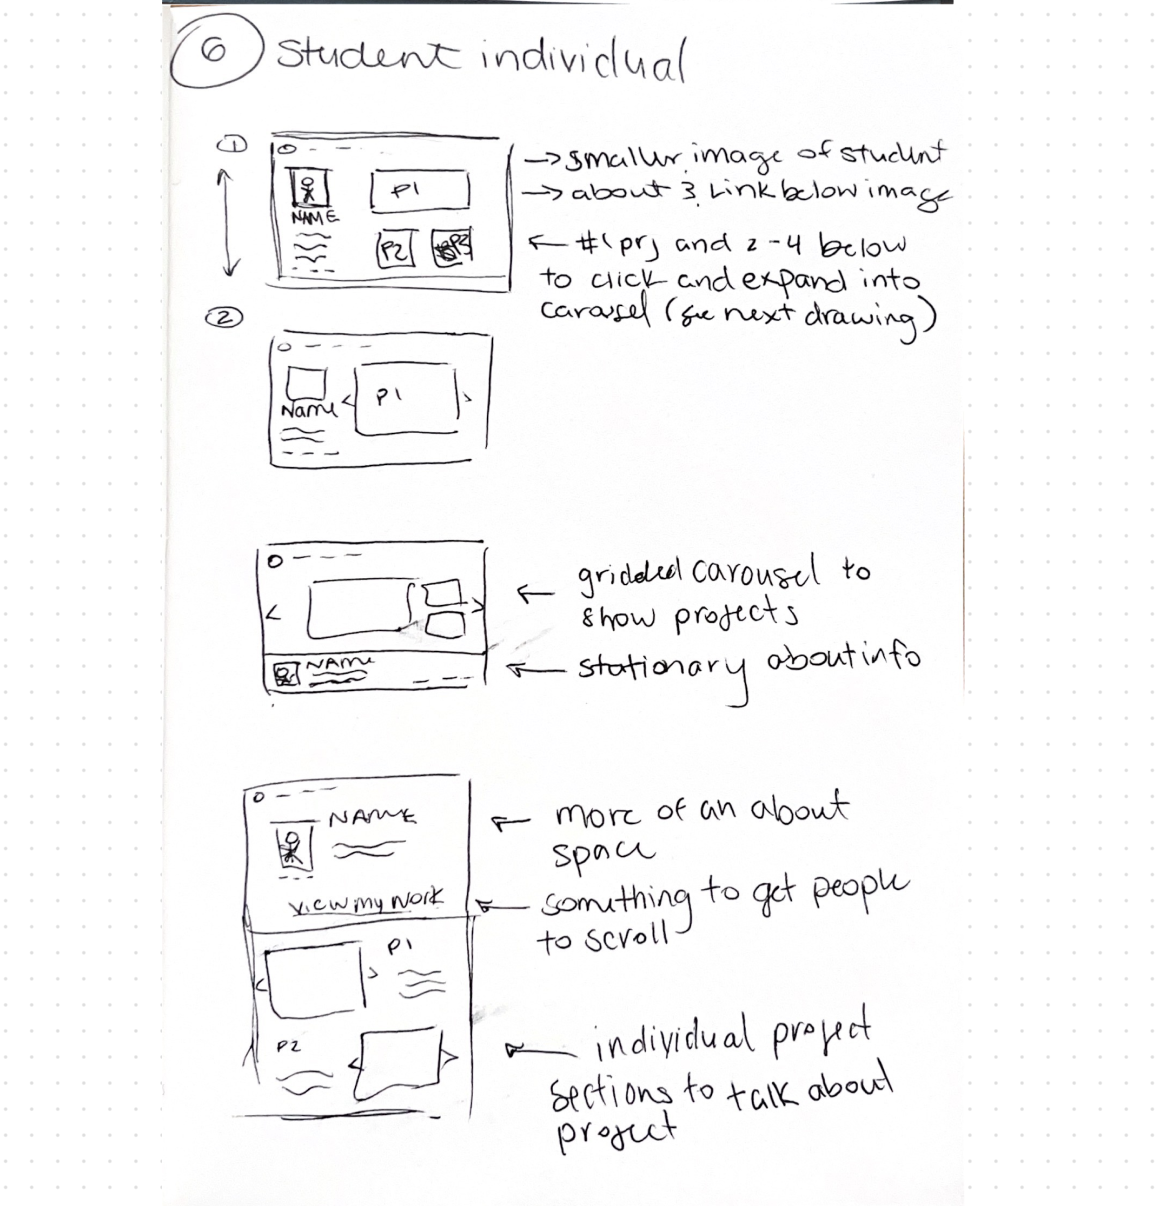 6 Student individual
1
→ smaller image of student
→ about & Link below image
NAME
P1
P2
P3
← #1 prj and 2-4 below
to click and expand into
carousel (see next drawing)
2
Name
< P1 >
← gridded carousel to
show projects
← stationary about info
< >
NAME
← more of an about
space
← something to get people
to scroll
NAME
view my work
P1
< >
P2
< >
← individual project
sections to talk about
project